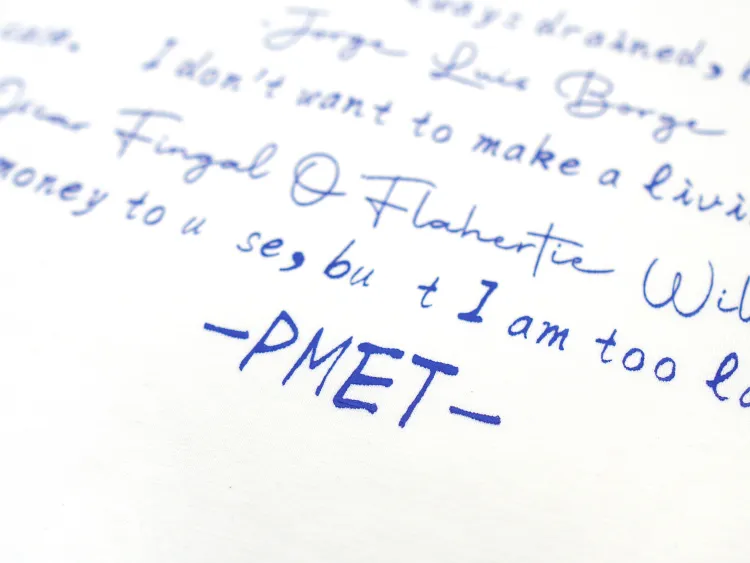 drained,
Jorge Luis Borge
I don't want to make a livi
Fingal O Flahertie Wil
money to u se, bu t I am too la
-PMET-